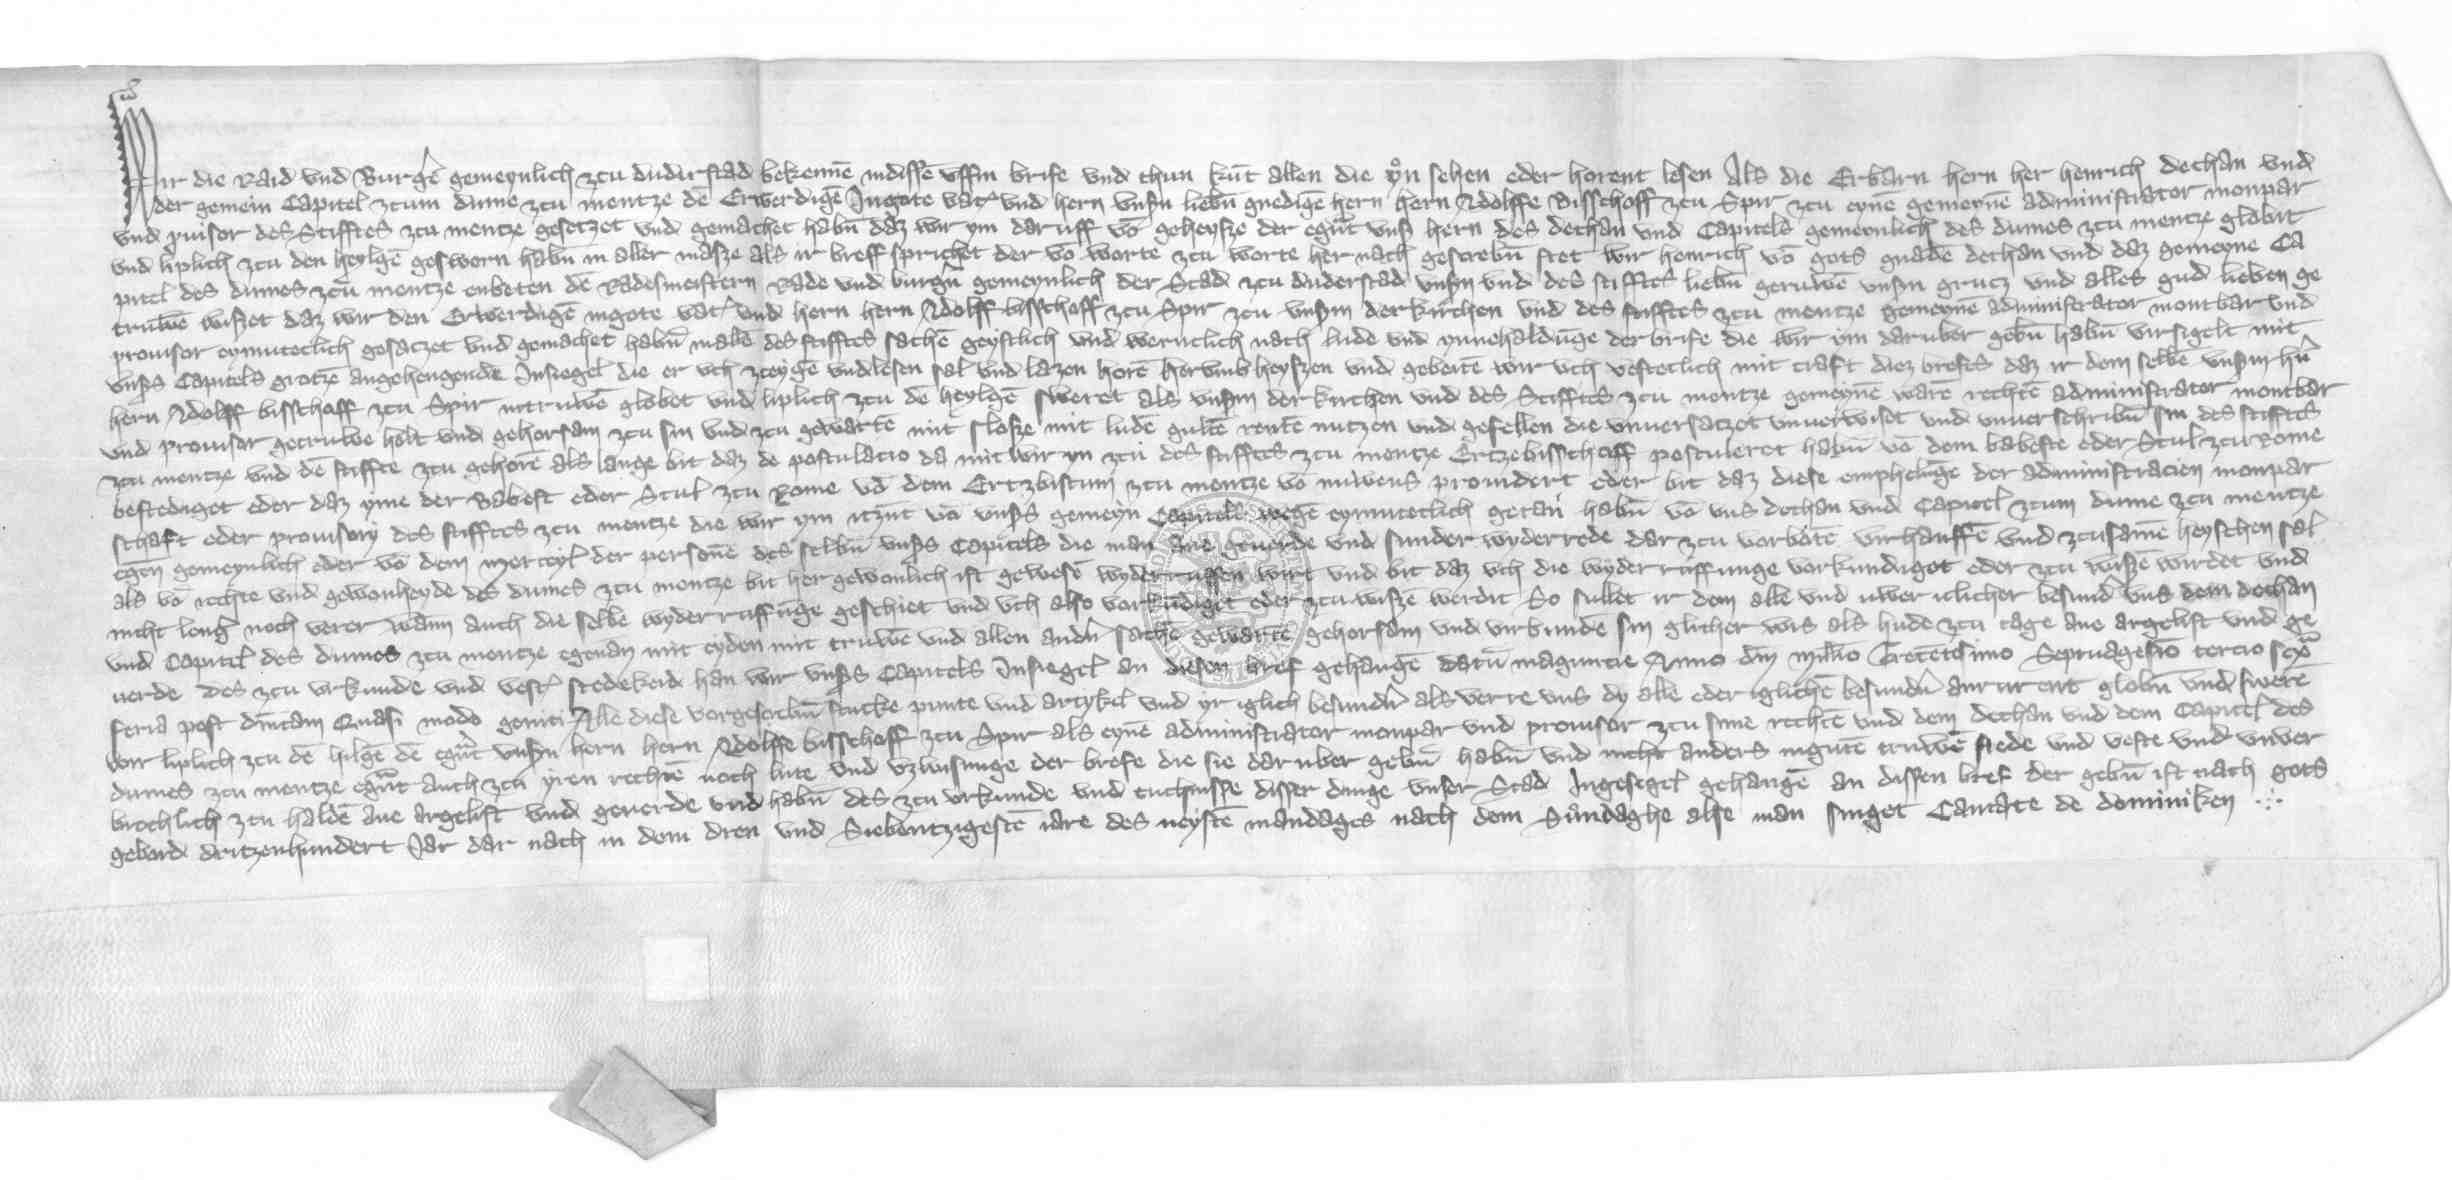 Wir die Raid vnd Burgē gemeynlich zcu dudirstad bekennē indissē uffin brife vnd thun kūt allen die yn sehen eder horent lesen Als die Erbarn hern her henrich dechan vnd
der gemein Capitel zcum dume zcu mentze dē Erwerdigē Ingote vat' vnd hern vnsn liebn̄ gnedigē hern hern Adolffe Bisschoff zcu Spir zcu eyne gemeynē administrator monpar
vnd puisor des Stifftes zcu mentze gesetzet vnd gemachet habn̄ daz wir ym daruff vō geheysze der egn̄t vns hern des dechan vnd Capitels gemeynlich des dumes zcu mentze globit
vnd liplich zcu den heylgē gesworn habn̄ in aller masze als ir breff sprichet der vō worte zcu worte her nach gescrebn̄ stet wir henrich vō gots gnadē dechan vnd daz gemeyne Ca
pitel des dumes zcu mentze enbeten dē Radesmeistern Rade vnd burgn̄ gemeynlich der Stad zcu duderstad vnsn vnd des stifftes liebn̄ getruwē vnsn grucz vnd alles gud lieben ge
truwē wiszet daz wir den Erwerdigē ingote vat' vnd hern hern Adolff bisschoff zcu Spir zcu vnsm derkirchen vnd des stifftes zcu mentze gemeynē administrator montbar vnd
prouisor eynmutclich gesatzet vnd gemachet habn̄ inallē des stifftes sachē geystlich vnd werntlich nach lude vnd ynnehaldūge der brife die wir ym daruber gebn̄ habn̄ virsigelt mit
vnsers Capitels grotzē angehengende Insiegel die er vch zceygē vndlesen sal vnd lazen horē hervmb heyszen vnd gebeitē wir vch vestetlich mit craft diez brefes daz ir dem selbē vnsm h'n
hern Adolff bisschoff zcu Spir intruwē globet vnd liplich zcu dē heylgē sweret als vnsm derkirchen vnd des Stifftes zcu mentze gemeynē warē rechtē administrator montbar
vnd prouisor getruwe holt vnd gehorsam zcu sin vnd zcu gewartē mit slosze mit ludē gultē rentē nutzen vnd gefellen die vnuersatzet vnuerwiset vnd vnuerschribn̄ sin des stifftes
zcu mentze vnd dē stiffte zcu gehorē als lange bit daz de postulacio da mit wir yn zcu des stifftes zcu mentze Ertzebisschoff postuleret habn̄ vō dem babeste eder Stul zcu Rome
bestediget eder daz yme der Babest eder Stul zcu Rome vō dem Ertzbistum zcu mentze vō nuwens prouidert eder bit daz diese emphelūge der administracien monpar
schaft eder prouisory des stifftes zcu mentze die wir ym itzūt vō vnsers gemeyn Capitels wegē eynmutclich getan habn̄ vō vns dechan vnd Capitel zcum dume zcu mentze
egen gemeynlich eder vō dem merteyl der personē des selbn̄ vnsers Capitels die man ane geuerde vnd sunder wyderrede dar zcu vorbotē virhauffē vnd zcusamē heyschen sal
als vō rechte vnd gewonheyde des dumes zcu mentze bit her gewonlich ist gewesē wyderruffen wirt vnd bit daz vch die wyderruffunge vorkundiget eder zcu wiszē wirdet vnd
nicht leng' noch verer wann auch die selbe wyderruffūge geschiet vnd vch also vorkūdiget eder zcu wiszē werdit So sullet ir dem alle vnd uwer iclicher besund' vns dem dechan
vnd Capitel des dumes zcu mentze egenān mit eyden mit truwē vnd allen andn̄ sachē gewartē gehorsam vnd virbunde sin glicher wis als hude zcu tage ane argelist vnd ge
uerde des zcu vrkunde vnd vest' stedekeid han wir vnsers Capitels Insiegel an diesen bref gehangē datū maguncie Anno dn̄i millio Trecētesimo Septuagesīo tercio sexta
feria post dn̄icam Quasi modo geniti Alle diese vorgescrebn̄ stucke punte vnd artykel vnd yr iglich besundn̄ als verre vns dy alle eder iglichē besundn̄ anrurent globn̄ vnd swerē
wir liplich zcu dē hilgē dē egn̄t vnsn hern hern Adolffe bisschoff zcu Spir als eynē administrator monpar vnd prouisor zcu sime rechtē vnd dem dechan vnd dem Capitel des
dumes zcu mentze egn̄t auch zcu yren rechtē noch lute vnd vzwisunge der brefe die sie daruber gebn̄ habn̄ vnd nicht anders ingutē truwē stede vnd veste vnd vnver
brochlich zcu haldē ane argelist vnd geuerde vnd habn̄ des zcu vrkunde vnd tuchnisse disser dinge vnser Stad Ingesegel gehangē an dissen bref der gebn̄ ist nach gots
gebord dritzenhundert Jar dar nach in dem dren vnd Siebentzigestē iare des neystē mandages nach dem Sūndaghe alse man singet Cantate de dominiken